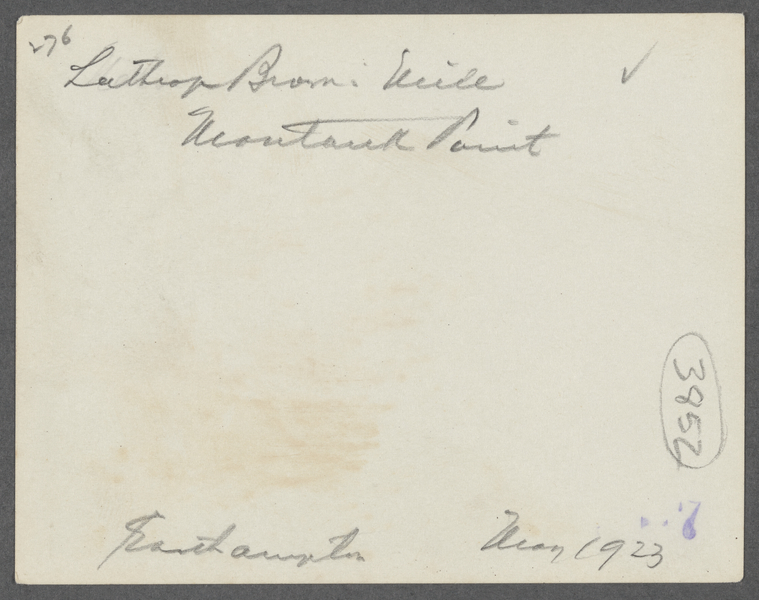 276
Lathrop Brown: Mill
Montauk Point
3952
Easthampton
May 1923